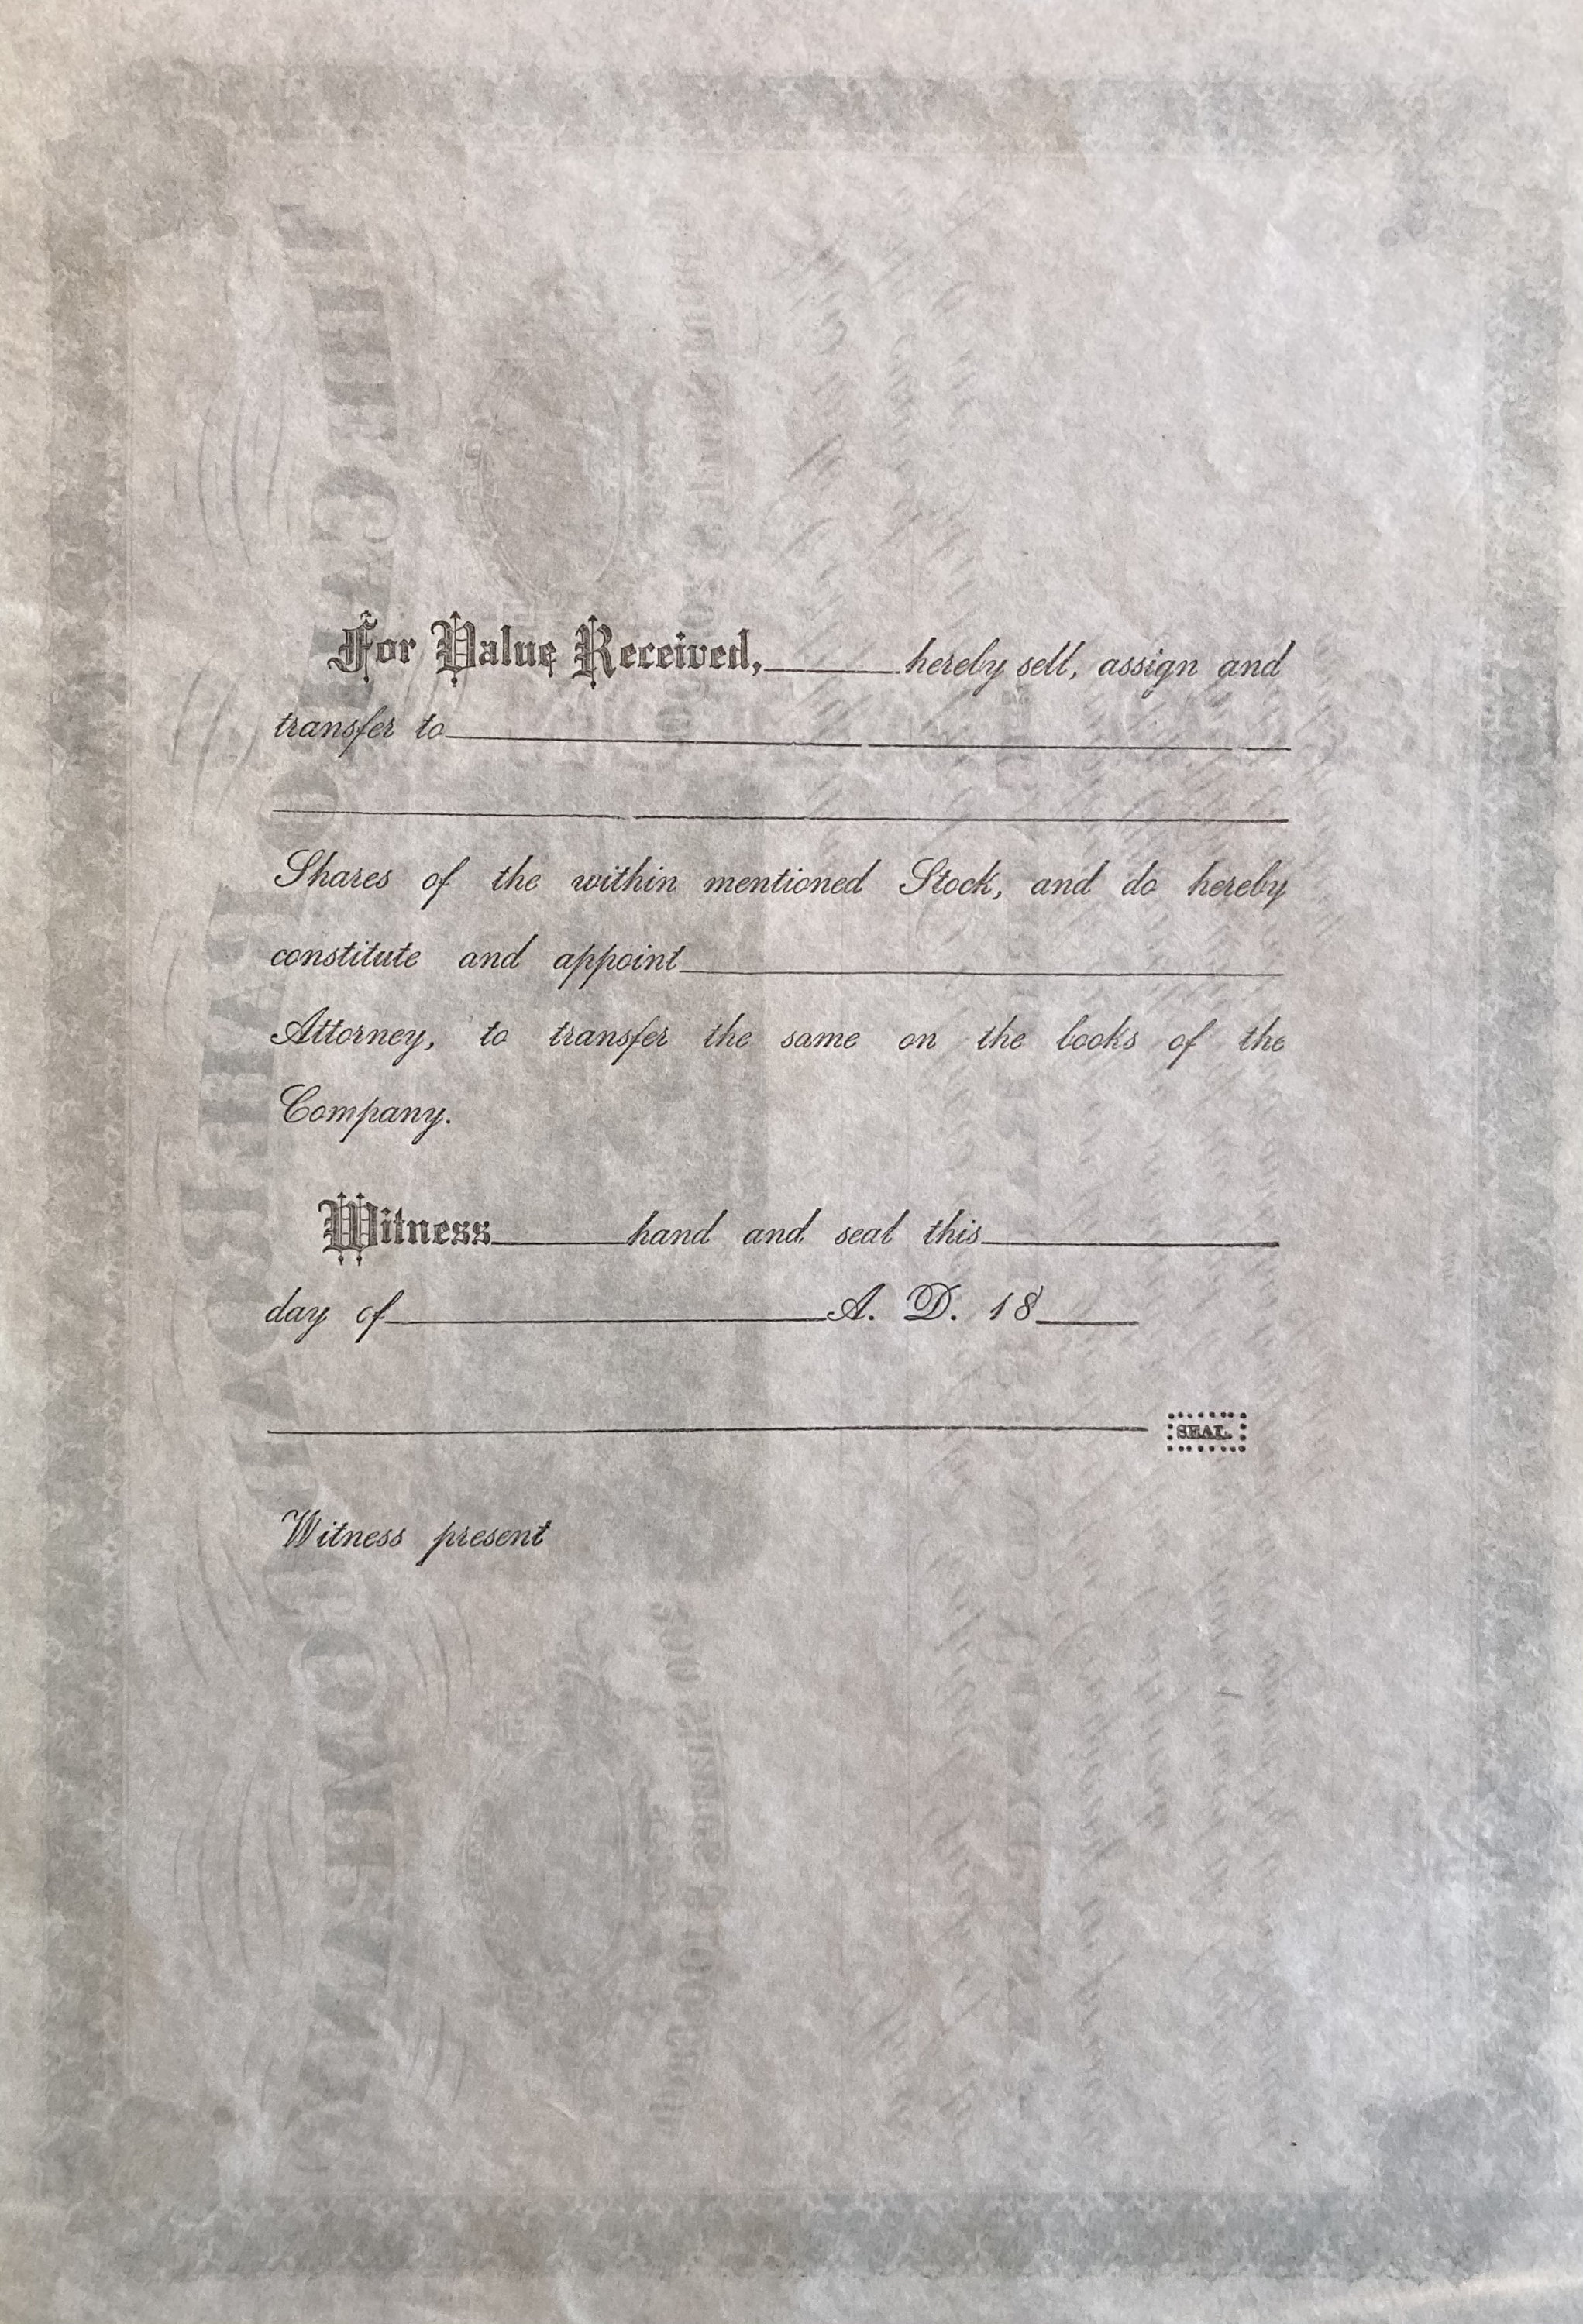 For Value Received, hereby sell, assign and
transfer to
Shares of the within mentioned Stock, and do hereby
constitute and appoint
Attorney, to transfer the same on the books of the
Company.
Witness hand and seal this
day of A. D. 18
SEAL.
Witness present